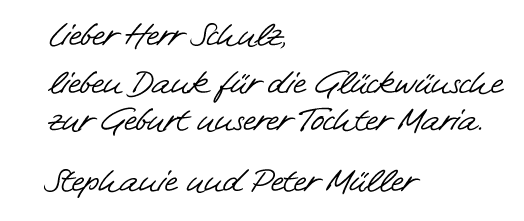 Lieber Herr Schulz,
lieben Dank für die Glückwünsche
zur Geburt unserer Tochter Maria.
Stephanie und Peter Müller